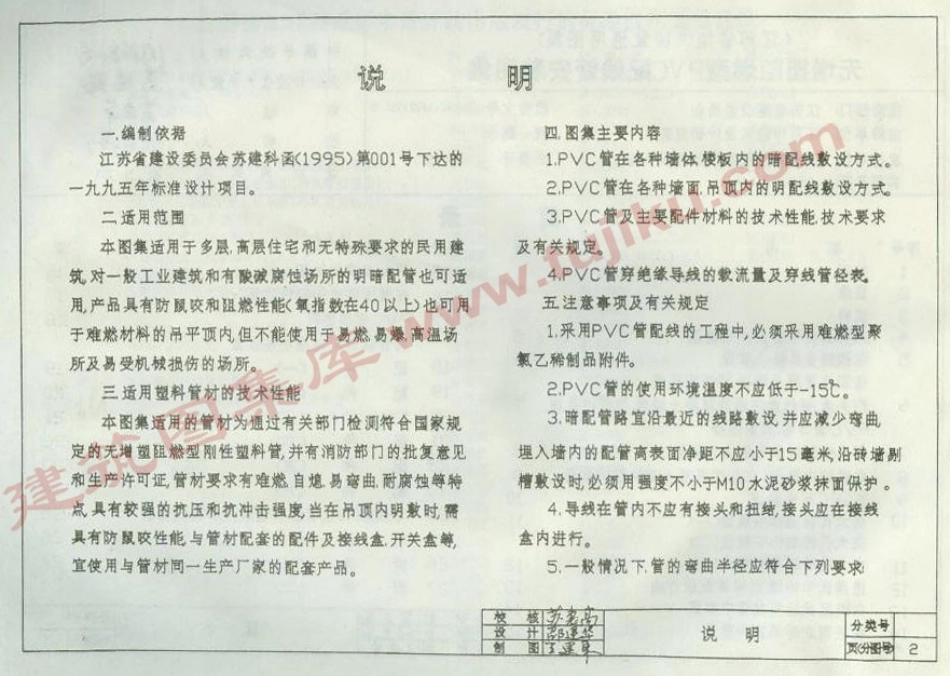 说 明
一.编制依据
江苏省建设委员会苏建科函(1995)第001号下达的
一九九五年标准设计项目。
二.适用范围
本图集适用于多层,高层住宅和无特殊要求的民用建
筑,对一般工业建筑和有酸碱腐蚀场所的明暗配管也可适
用,产品具有防鼠咬和阻燃性能(氧指数在40以上)也可用
于难燃材料的吊平顶内,但不能使用于易燃.易爆.高温场
所及易受机械损伤的场所。
三.适用塑料管材的技术性能
本图集适用的管材为通过有关部门检测符合国家规
定的无增塑阻燃型刚性塑料管,并有消防部门的批复意见
和生产许可证,管材要求有难燃.自熄.易弯曲.耐腐蚀等特
点,具有较强的抗压和抗冲击强度,当在吊顶内明敷时,需
具有防鼠咬性能,与管材配套的配件及接线盒.开关盒等,
宜使用与管材同一生产厂家的配套产品。
四.图集主要内容
1.PVC管在各种墙体.楼板内的暗配线敷设方式。
2.PVC管在各种墙面.吊顶内的明配线敷设方式。
3.PVC管及主要配件材料的技术性能,技术要求
及有关规定。
4.PVC管穿绝缘导线的载流量及穿线管径表。
五.注意事项及有关规定
1.采用PVC管配线的工程中,必须采用难燃型聚
氯乙稀制品附件。
2.PVC管的使用环境温度不应低于-15℃。
3.暗配管路宜沿最近的线路敷设,并应减少弯曲
埋入墙内的配管离表面净距不应小于15毫米,沿砖墙剔
槽敷设时,必须用强度不小于M10水泥砂浆抹面保护。
4.导线在管内不应有接头和扭绕,接头应在接线
盒内进行。
5.一般情况下,管的弯曲半径应符合下列要求:
校 核
设 计
制 图
说 明
分类号
页(分图号) 2
建筑图集库 www.tujiku.com